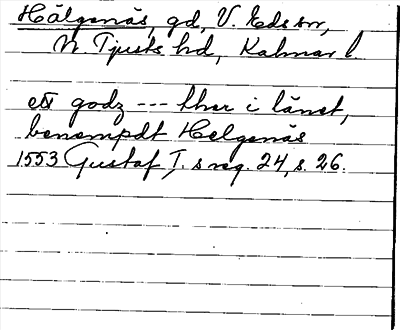 Hälgenäs, gd, V. Eds sn,
N. Tjusts hd, Kalmar l.
ett godz --- lher i länet,
benempdt Helgenäs
1553 Gustaf I:s reg. 24, s. 26.